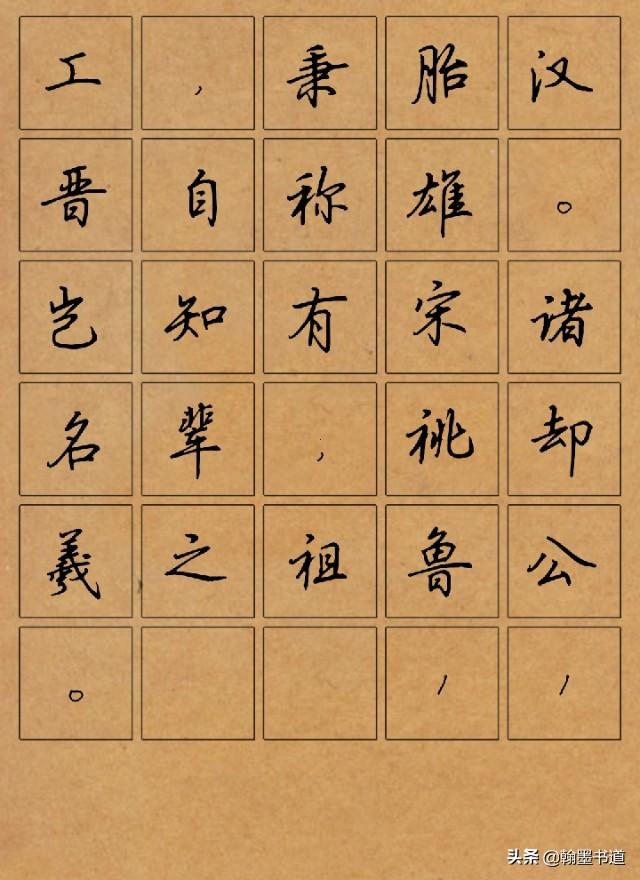 工，秉胎汉
晋自称雄。
岂知有宋诸
名辈，祧却
羲之祖鲁公
。
头条 @翰墨书道